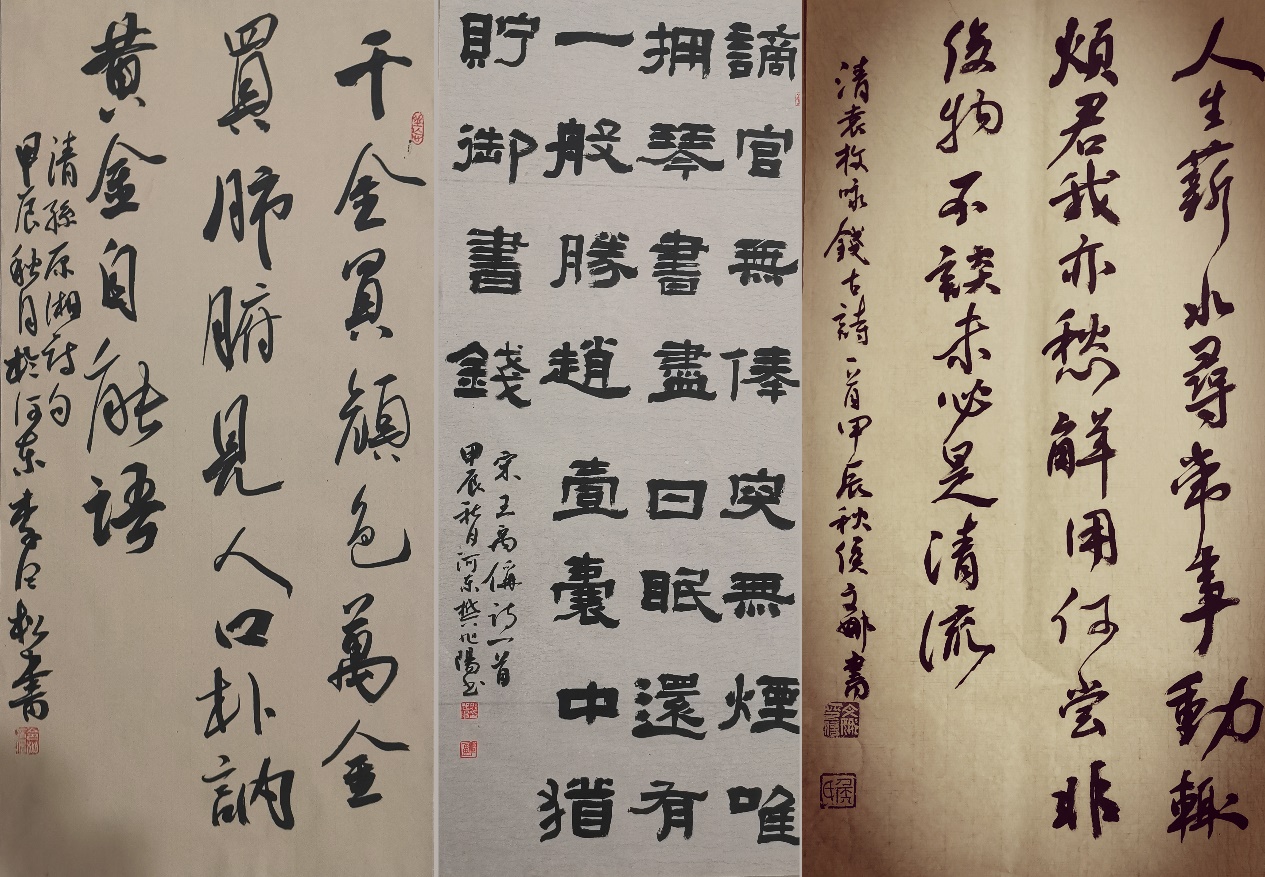 千金買顏色萬金
買肺腑見人口朴訥
黄金自能語
清孫原湘詩句
甲辰秋月於河東李松書
謫官無俸突無煙唯
拥琴書盡日眠還有
一般勝趙壹囊中猶
貯御書錢
宋王禹偁詩一首
甲辰秋月河東樊旭陽书
人生薪水尋常事動輒
煩君我亦愁解用何尝非
俊物不談未必是清流
清袁枚咏錢古詩一首甲辰秋侯文娜書